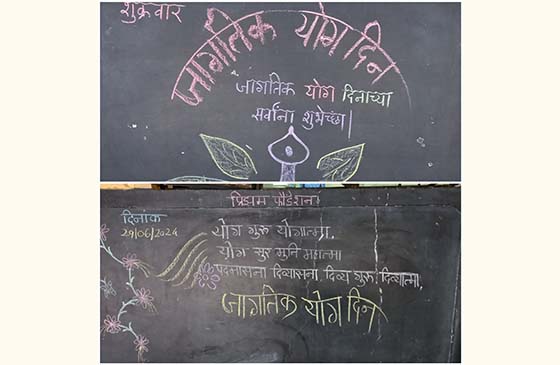 शुक्रवार
जागतिक योग दिन
जागतिक योग दिनाच्या
सर्वांना शुभेच्छा।
प्रिझम फौंडेशन
दिनांक
२१/०६/२०२४
योग गुरु योगात्मा,
योग सुर मुनि महात्मा
पदमासना दिव्यासना दिव्य गुरु दिव्यात्मा,
जागतिक योग दिन